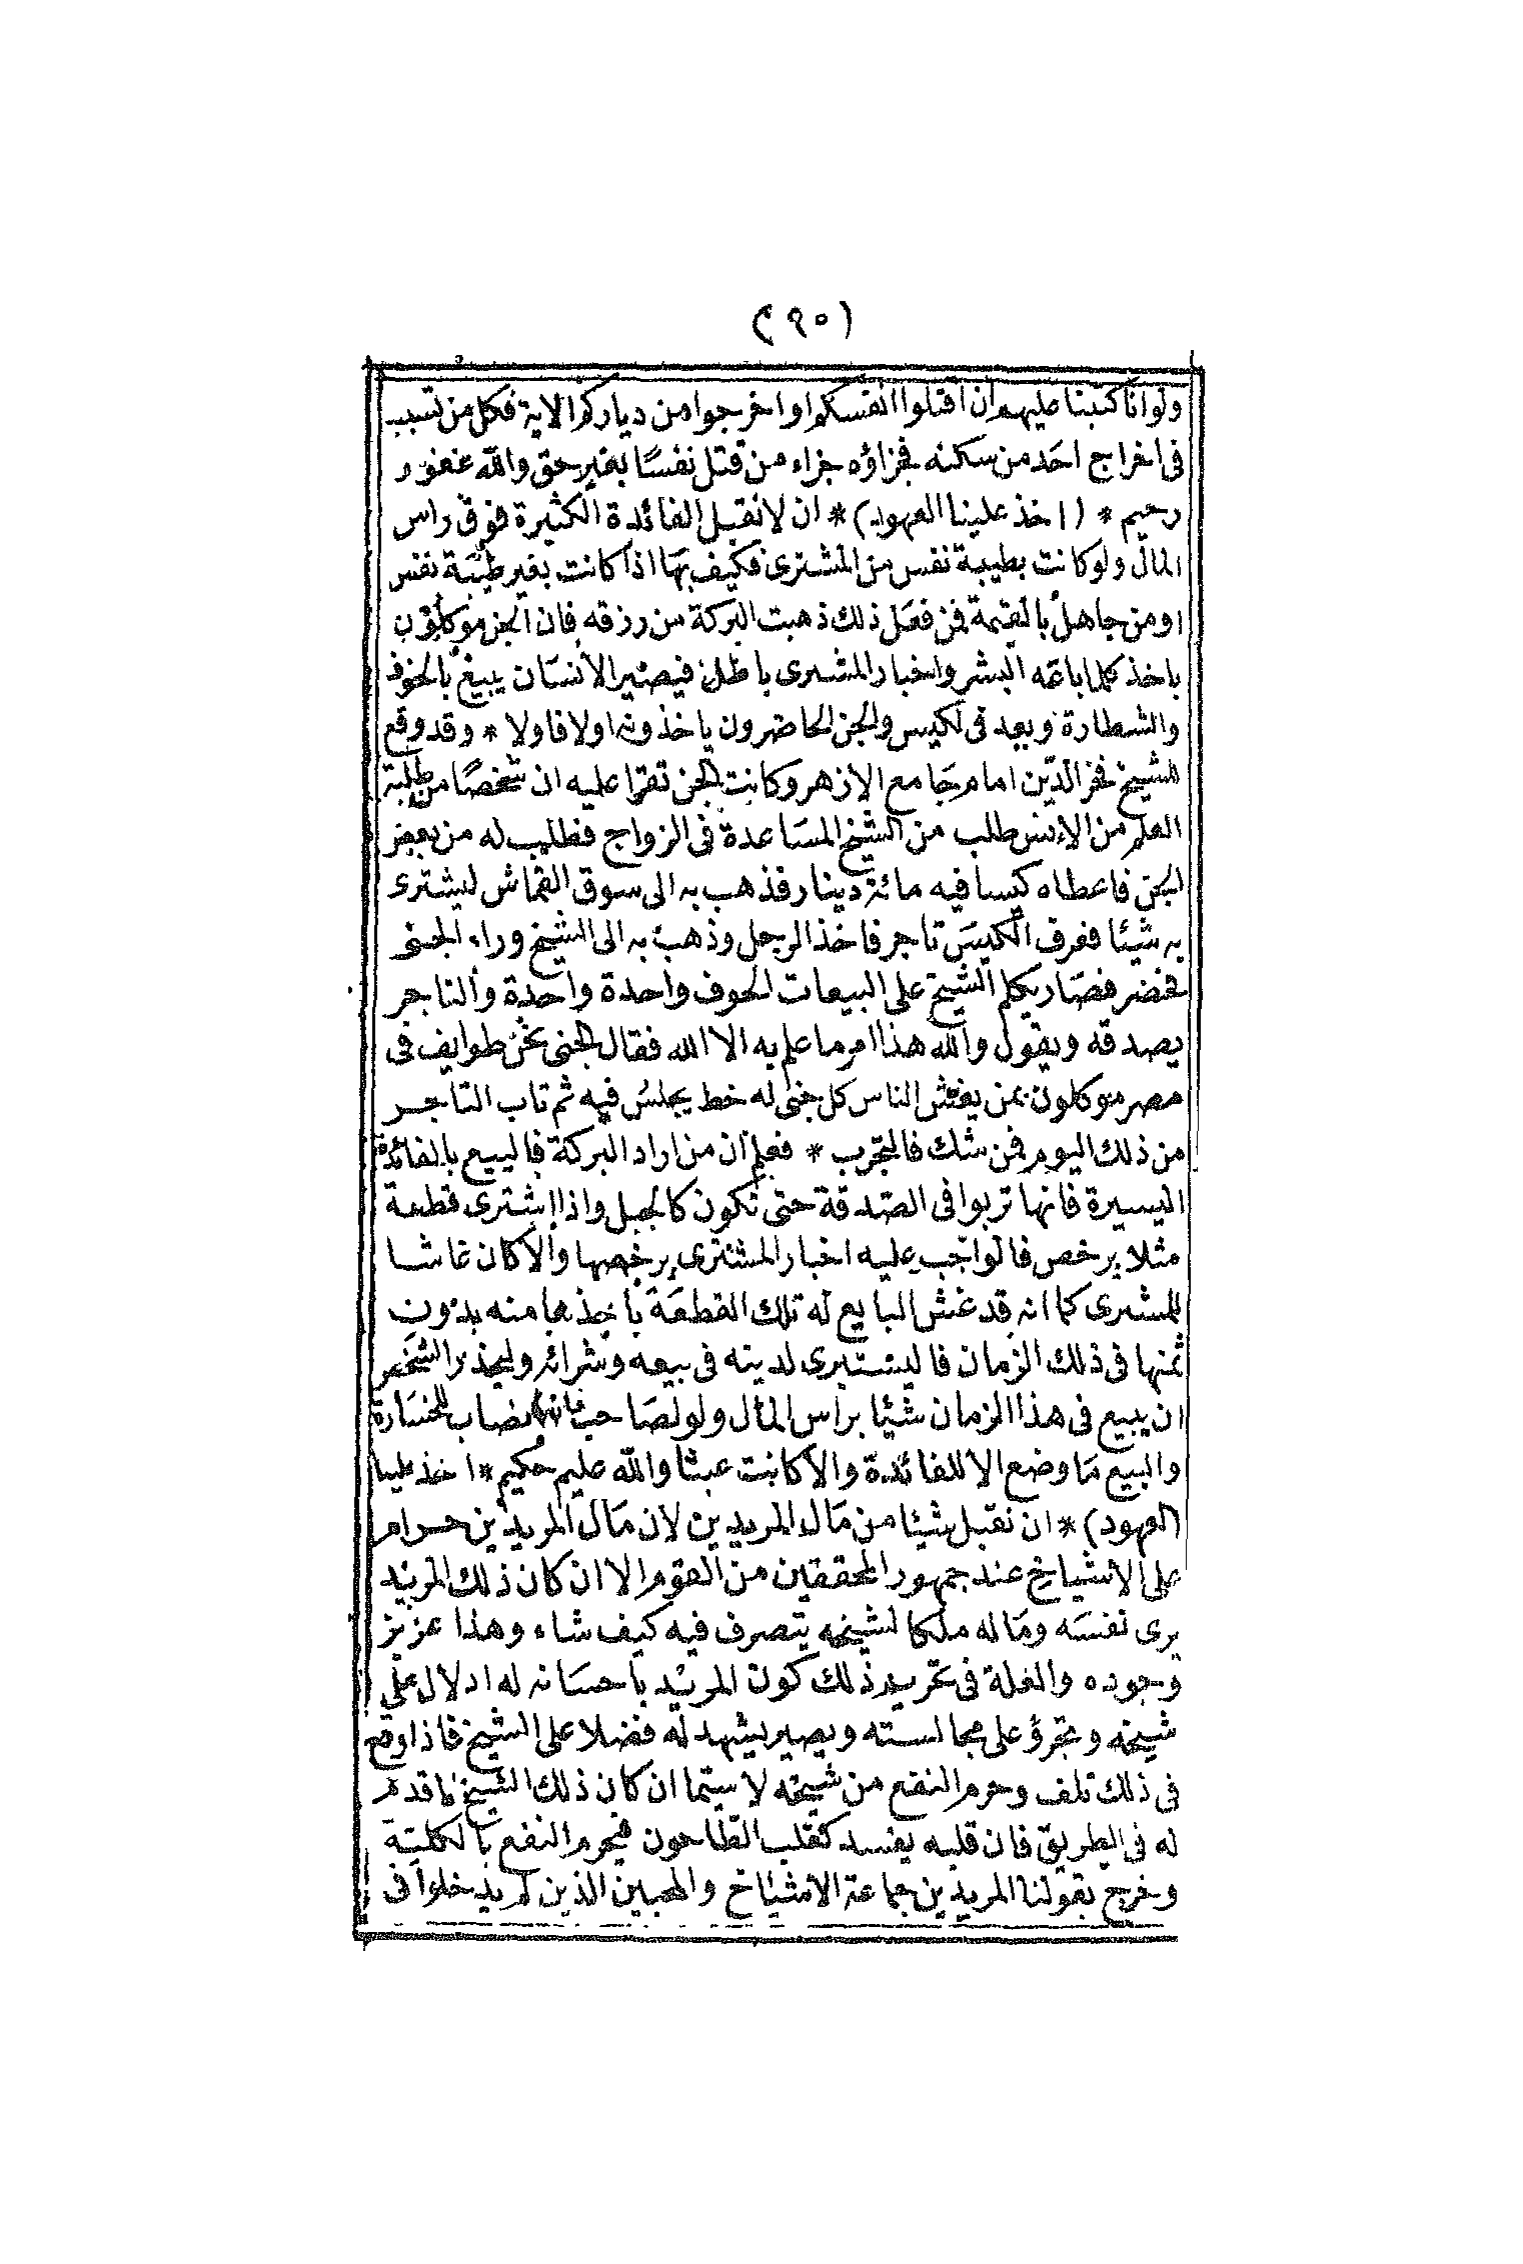 (٩٠)
ولو انا كتبنا عليهم ان اقتلوا انفسكم او اخرجوا من دياركم الاية فكل من تسبب
فى اخراج احد من سكنه فجزاؤه جزاء من قتل نفسًا بغير حق والله غفور
رحيم * (اخذ علينا العهود) * ان لا نقبل الفائدة الكثيرة فوق راس
المال ولو كانت بطيبة نفس من المشترى فكيف بها اذا كانت بغير طيبة نفس
او من جاهل بالقيمة فمن فعل ذلك ذهبت البركة من رزقه فان الجن موكلون
باخذ كلما باعه البشر واخبار المشترى باطل فيصير الانسان يبيع بالحوف
والشطارة ويعد فى لكيس والجن الحاضرون ياخذونه اولا فاولا * وقد وقع
للشيخ فخر الدين امام جامع الازهر وكانت الجن تقرا عليه ان شخصًا من طلبة
العلم من الانس طلب من الشيخ المساعدة فى الزواج فطلب له من بعض
الجن فاعطاه كيسا فيه مائة دينار فذهب به الى سوق القماش ليشترى
به شيئا فعرف الكيس تاجر فاخذ الرجل وذهب به الى الشيخ وراء الجنى
فحضر فصار يكلم الشيخ على البيعات الحوف واحدة واحدة والتاجر
يصدقه ويقول والله هذا امر ما علم به الا الله فقال الجنى نحن طوايف فى
مصر موكلون بمن يغش الناس كل جنى له خط يجلس فيه ثم تاب التاجر
من ذلك اليوم فمن شك فاليجرب * فعلم ان من اراد البركة فاليبيع بالفائدة
اليسيرة فانها تربوا فى الصدقة حتى تكون كالجبل واذا اشترى قطعة
مثلا برخص فالواجب عليه اخبار المشترى برخصها والا كان غاشا
للمشترى كما انه قد غش البايع له تلك القطعة باخذها منه بدون
ثمنها فى ذلك الزمان فاليستبرى لدينه فى بيعه وشرائه وليحذر الشخص
ان يبيع فى هذا الزمان شيئا براس المال ولو لصاحب نصاب للخسارة
والبيع ما وضع الا للفائدة والا كانت عبثا والله عليم حكيم * اخذ علينا
العهود) * ان نقبل شيئا من مال المريدين لان مال المريدين حرام
على الاشياخ عند جمهور المحققين من القوم الا ان كان ذلك المريد
يرى نفسه وماله ملكا لشيخه يتصرف فيه كيف شاء وهذا عزيز
وجوده والعلة فى تحريم ذلك كون المريد باحسانه له ادلال على
شيخه وتجرؤ على مجالسته ويصير يشهد له فضلا على الشيخ فاذا وقع
فى ذلك تلف وحرم النفع من شيخه لا سيما ان كان ذلك الشيخ ما قدم
له فى الطريق فان قلبه يفسد كقلب الطاحون فيحرم النفع بالكلية
وخرج بقولنا المريدين جماعة الاشياخ والمحبين الذين لم يدخلوا فى